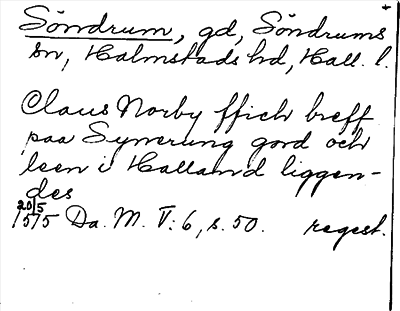 Söndrum, gd, Söndrums
sn, Halmstads hd, Hall. l.
Claus Norby ffich breff
paa Symerung gord och
leen i Halland liggen-
des
20/5
1515 Da. M. V: 6, s. 50. regest.